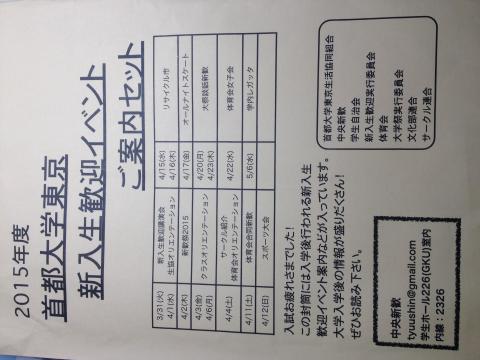 2015年度
首都大学東京
新入生歓迎イベント
ご案内セット
3/31(火) 新入生歓迎講演会 4/15(水) リサイクル市
4/1(水) 生協オリエンテーション 4/16(木)
4/2(木) 新歓祭2015 4/17(金) オールナイトスケート
4/3(金) クラスオリエンテーション 4/20(月) 大祭談話新歓
4/6(月) 4/23(木)
4/4(土) サークル紹介 体育会オリエンテーション 4/22(水) 体育会女子会
4/11(土) 体育会合同新歓 5/6(水) 学内レガッタ
4/12(日) スポーツ大会
入試お疲れさまでした!
この封筒には入学後行われる新入生
歓迎イベント案内などが入っています。
大学入学後の情報が盛りだくさん!
ぜひお読み下さい。
首都大学東京生活協同組合
中央新歓
学生自治会
新入生歓迎実行委員会
体育会
大学祭実行委員会
文化部連合
サークル連合
中央新歓
tyuushin@gmail.com
学生ホール226(GIKU)室内
内線:2326